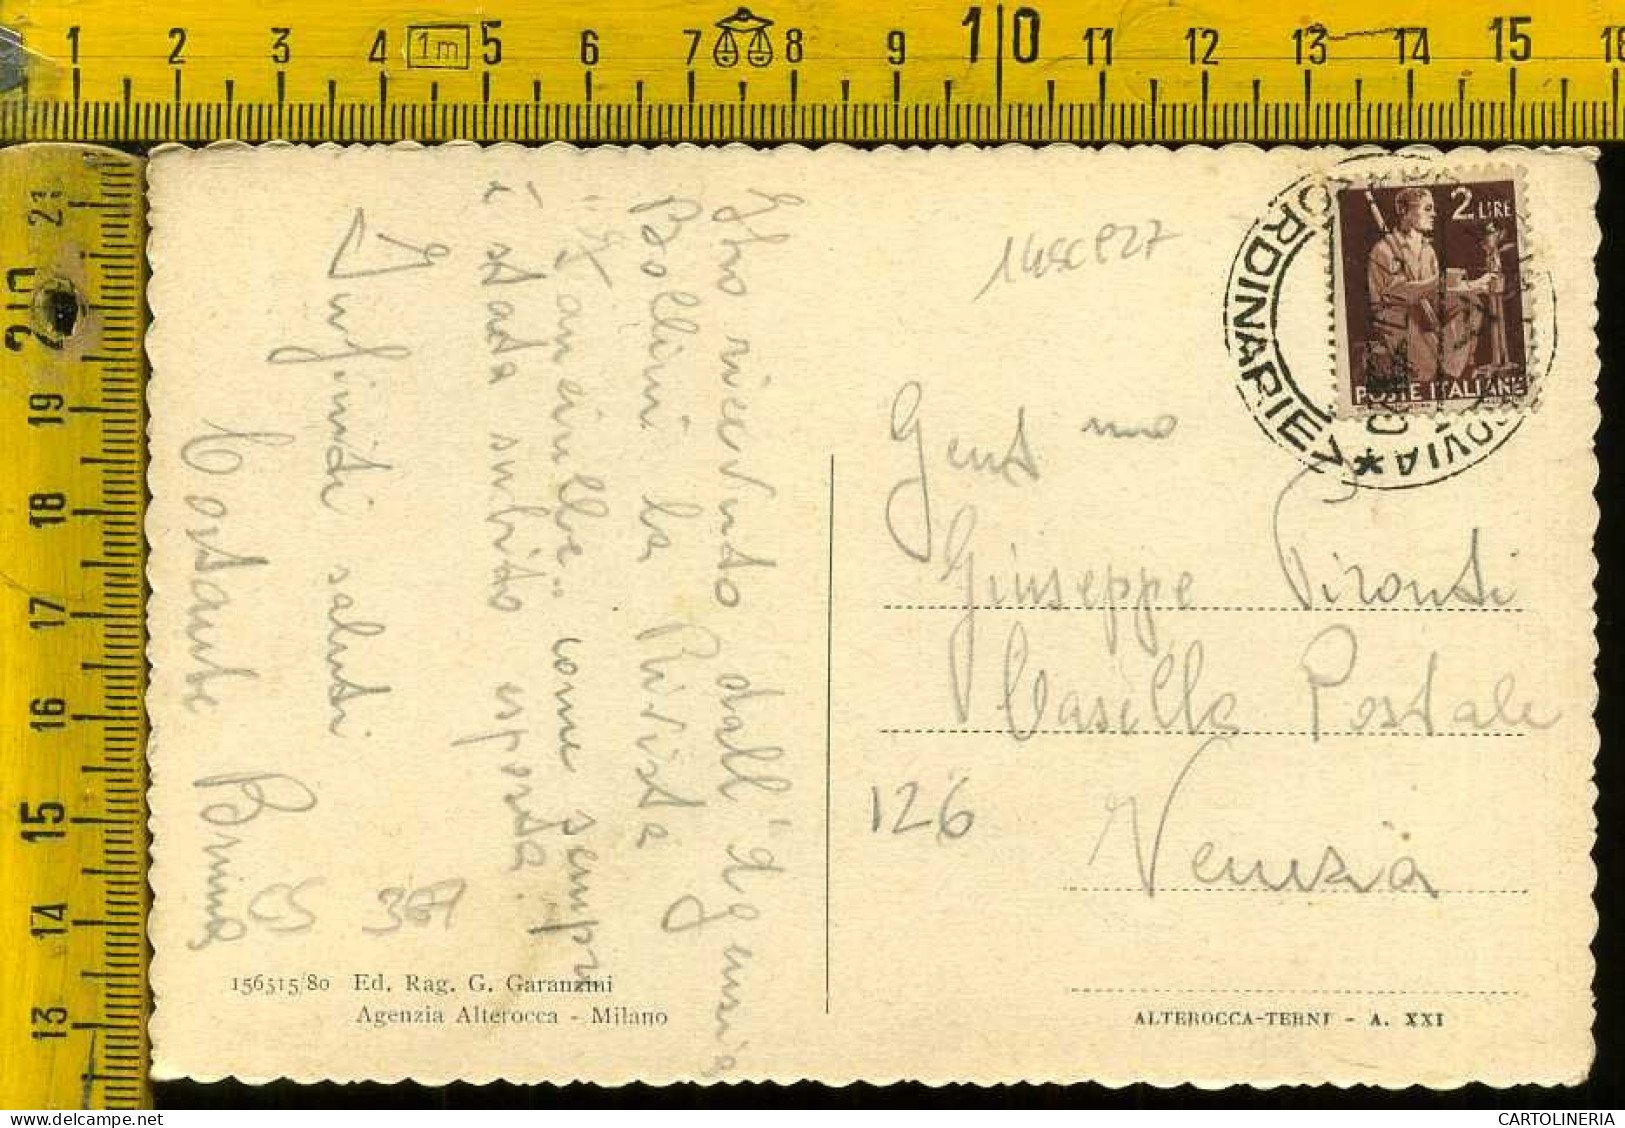 1 2 3 4 1m 5 6 7 8 9 10 11 12 13 14 15 16
21
20
19
18
17
16
15
14
13
Ho ricevuto dall'"Agenzia
Bollini la Rivista
come sempre
è stata subito esposta.
Infiniti saluti
Costante
CS
367
156315/80 Ed. Rag. G. Garanzini
Agenzia Alterocca - Milano
2 LIRE
POSTE ITALIANE
ORDINARIE
Gent mo
Giuseppe Pironti
Casella Postale
126
Venezia
ALTEROCCA-TERNI - A. XXI
CARTOLINERIA